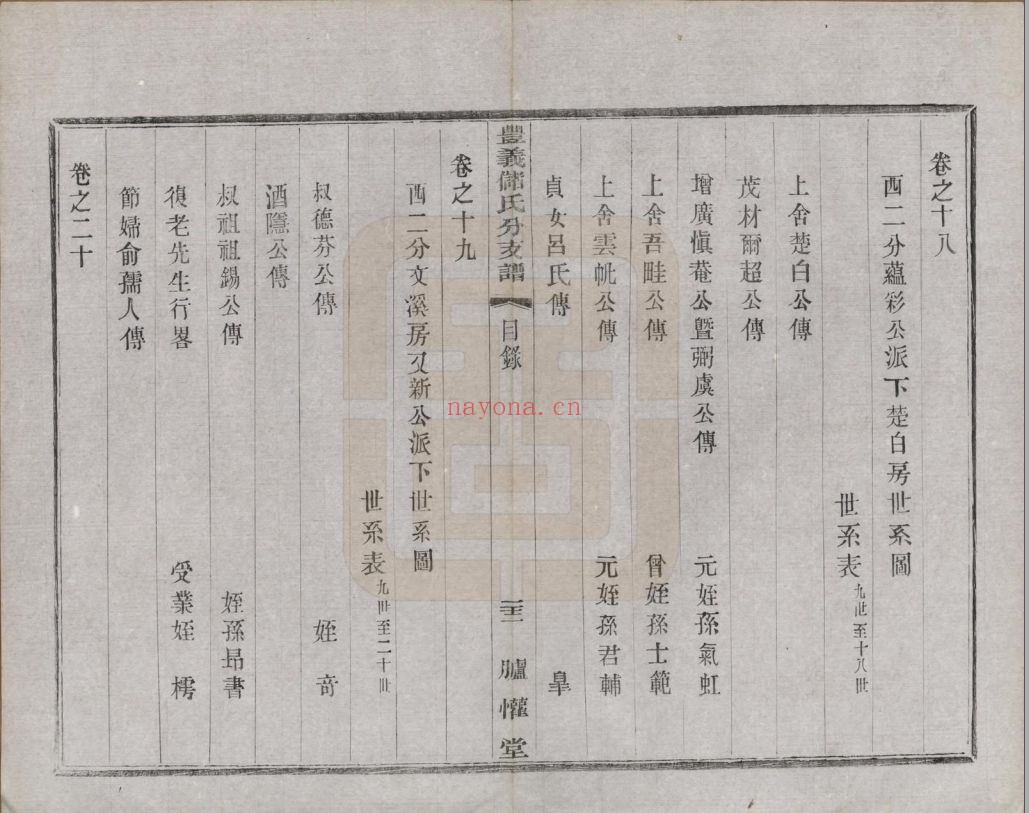 卷之十八
西二分蘊彩公派下楚白房世系圖
世系表九世至十八世
上舍楚白公傳
茂材爾超公傳
增廣愼菴公暨弼虞公傳 元姪孫氣虹
上舍吾畦公傳 曾姪孫士範
上舍雲帆公傳 元姪孫君輔
貞女呂氏傳
豐義儲氏分支譜 目錄 臚懽堂
卷之十九
西二分文溪房又新公派下世系圖
世系表九世至二十世
叔德芬公傳 姪奇
酒隱公傳
叔祖祖錫公傳 姪孫昂書
復老先生行畧 受業姪樗
節婦俞孺人傳
卷之二十
nayona.cn